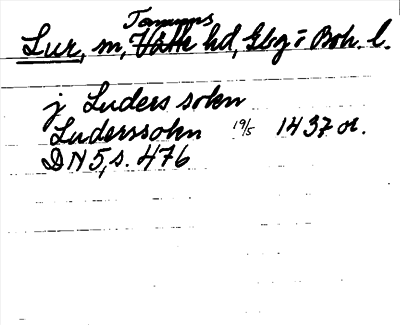 Tanums
Lur, m, Vätte hd, Gbg o Boh. l.
j Luders sohn
Luderssohn 19/5 1437 or.
DN 5, s. 476